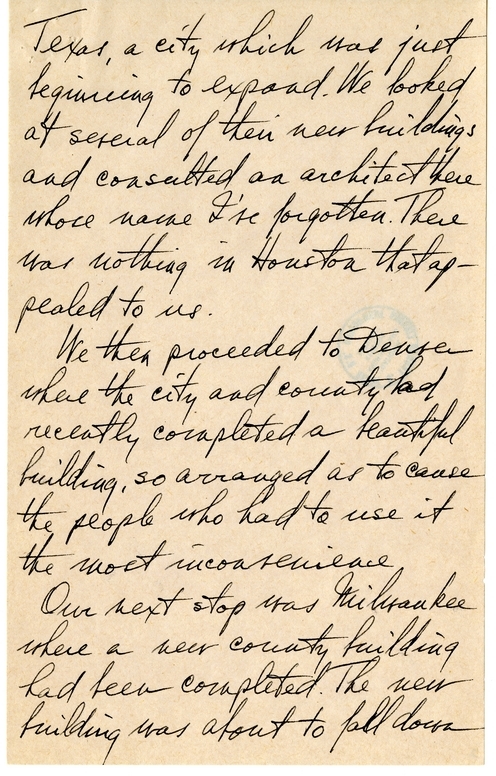 Texas, a city which was just
beginning to expand. We looked
at several of their new buildings
and consulted an architect there
whose name I've forgotten. There
was nothing in Houston that ap-
pealed to us.
We then proceeded to Denver
where the city and county had
recently completed a beautiful
building, so arranged as to cause
the people who had to use it
the most inconvenience
Our next stop was Milwaukee
where a new county building
had been completed. The new
building was about to fall down